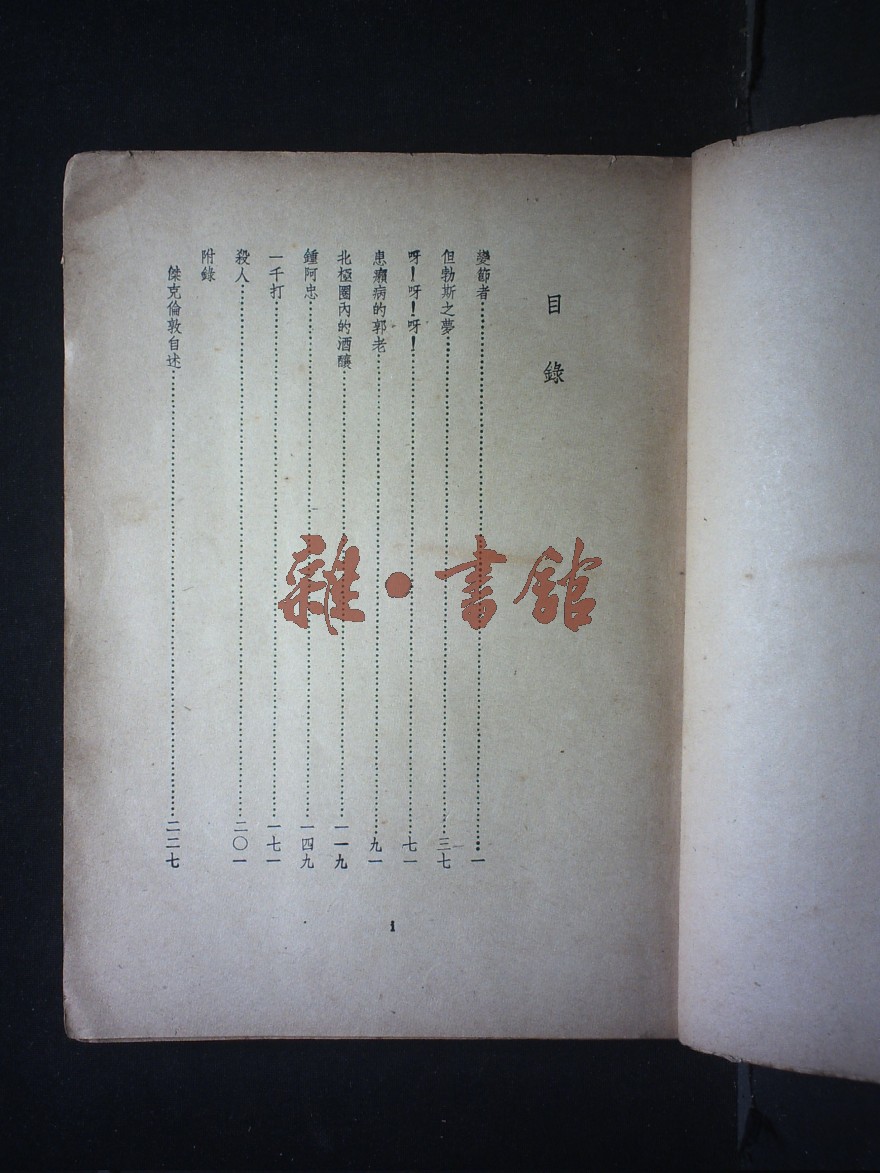 目錄
變節者……一
但勃斯之夢……三七
呀！呀！呀！……七一
患癩病的郭老……九一
北極圈內的酒釀……一一九
鍾阿忠……一四九
一千打……一七一
殺人……二〇一
附錄
傑克倫敦自述……二二七
1
雜·書館